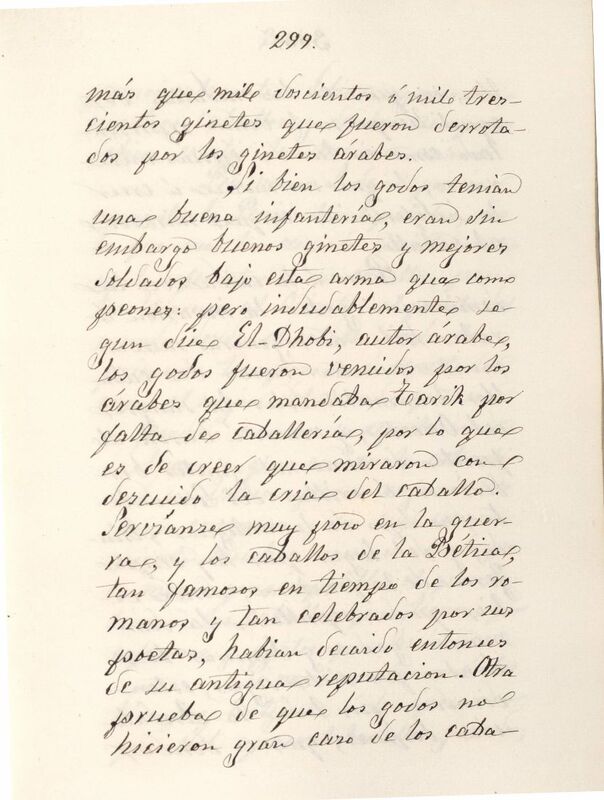 299.
más que mil doscientos ó mil tres-
cientos ginetes que fueron derrota-
dos por los ginetes árabes.
Si bien los godos tenian
una buena infantería, eran sin
embargo buenos ginetes y mejores
soldados bajo esta arma que como
peones: pero indudablemente se
gun dice El-Dhobi, autor árabe,
los godos fueron vencidos por los
árabes que mandaba Tarik por
falta de caballería, por lo que
es de creer que miraron con
descuido la cria del caballo.
Servíanse muy poco en la guer-
ra, y los caballos de la Bética,
tan famosos en tiempo de los ro-
manos y tan celebrados por sus
poetas, habian decaido entonces
de su antigua reputacion. Otra
prueba de que los godos no
hicieron gran caso de los caba-